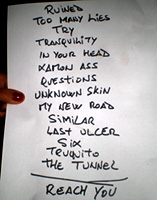 RUINED
TOO MANY LIES
TRY
TRANQUILITY
IN YOUR HEAD
XAMON ASS
QUESTIONS
UNKNOWN SKIN
MY NEW ROAD
SIMILAR
LAST ULCER
SIX
TRUQUITO
THE TUNNEL
REACH YOU